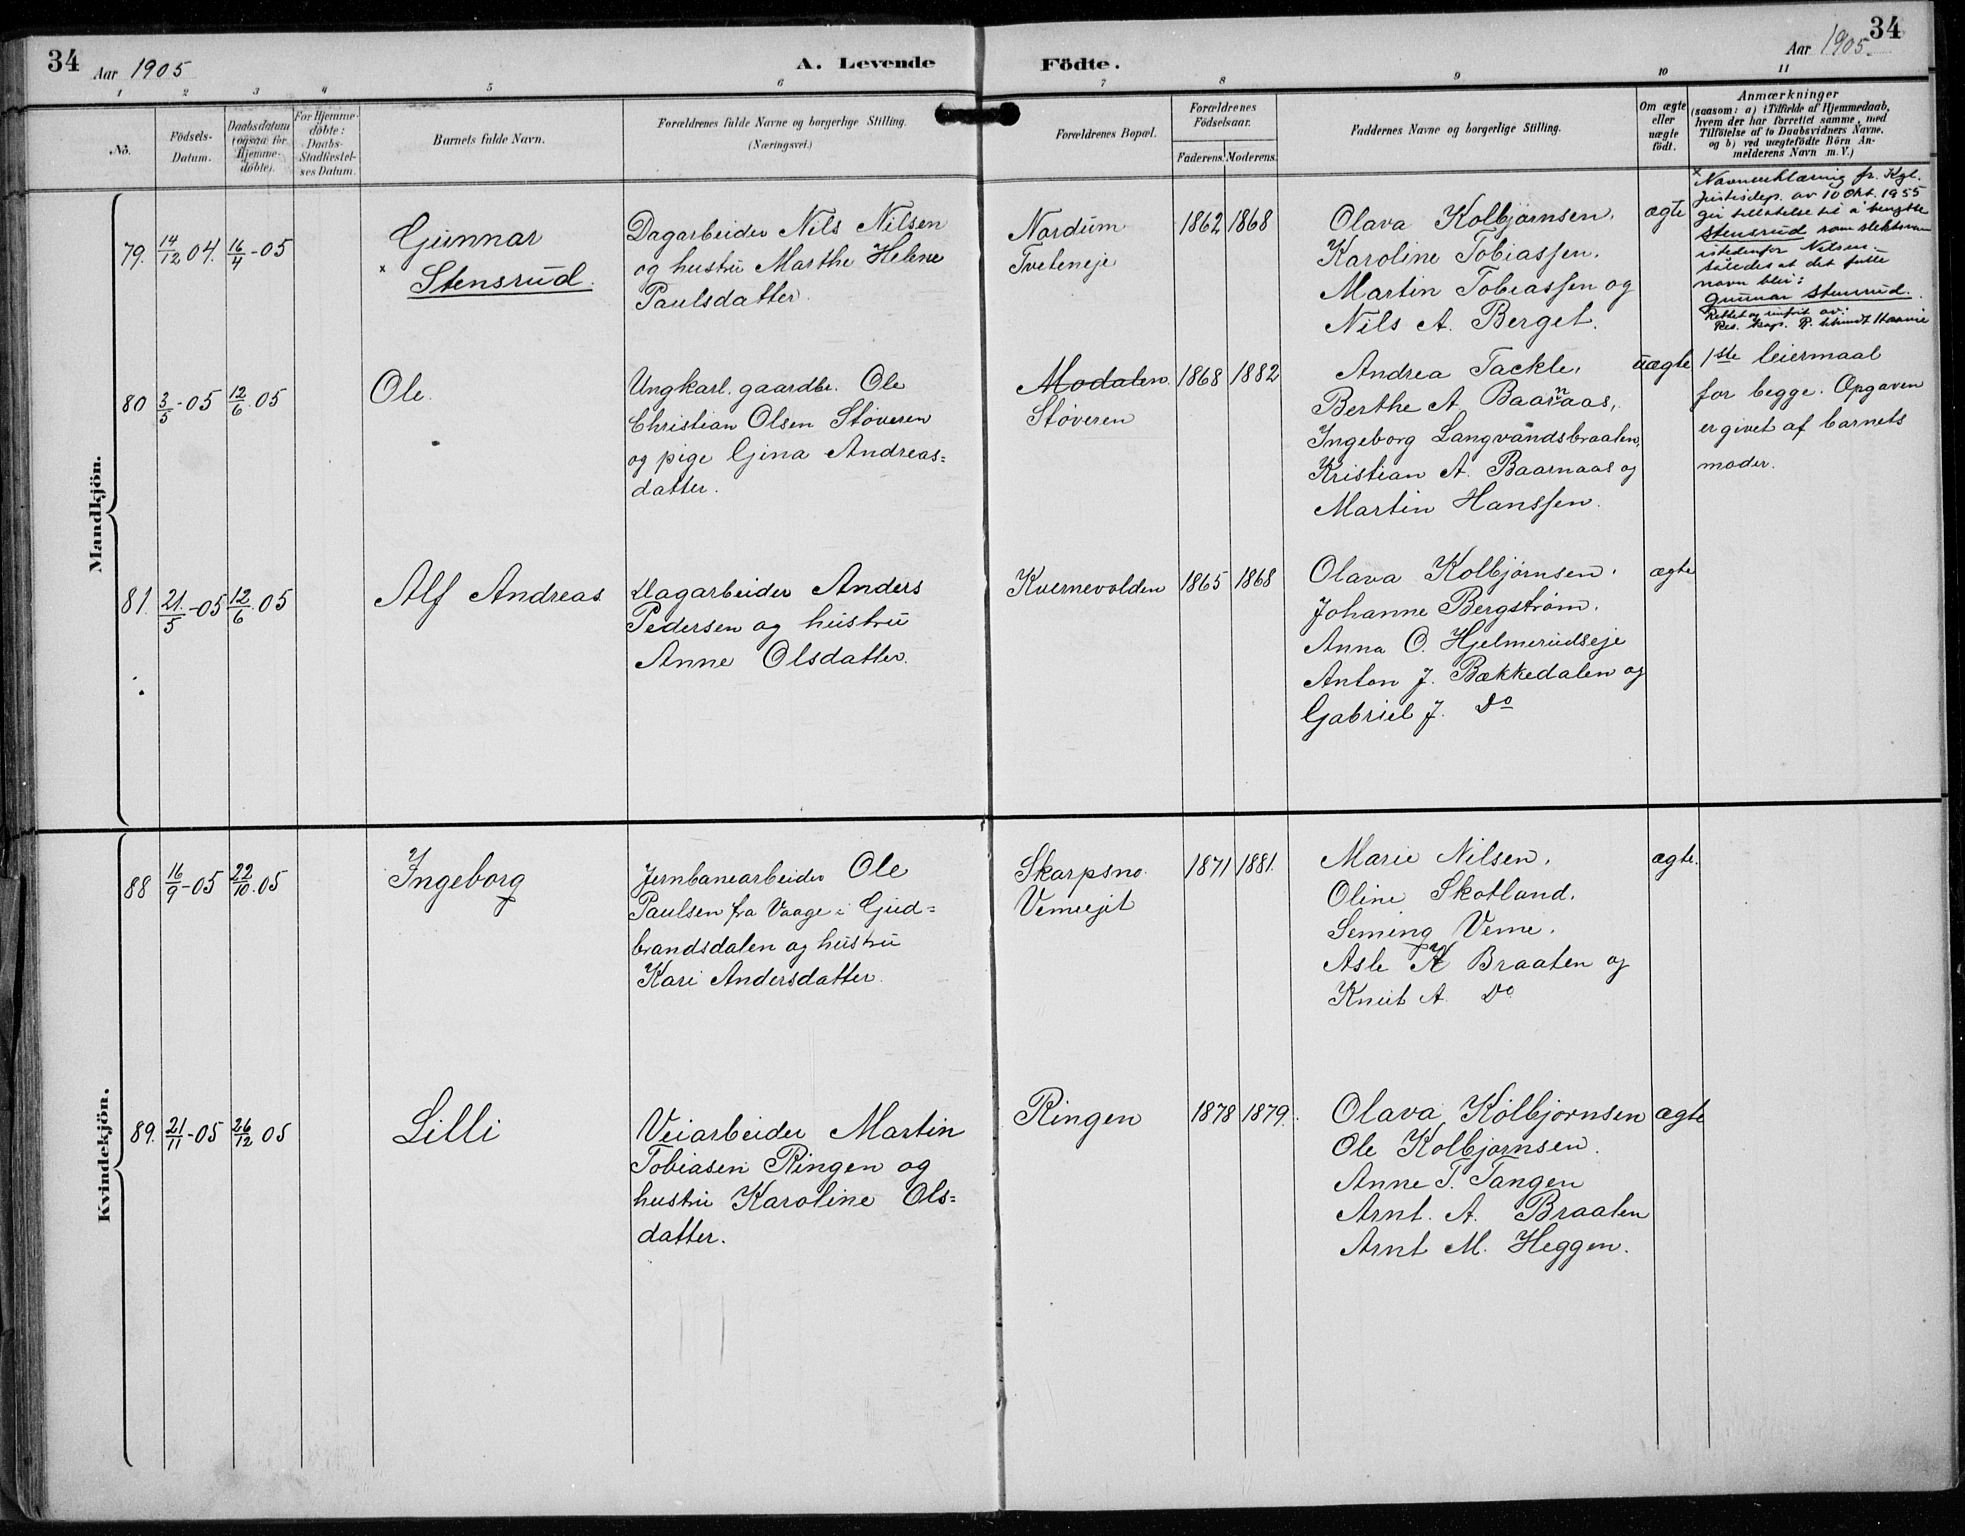 34
Aar 1905
A. Levende Födte.
Aar 1905.
34
1 2 3 4 5 6 7 8 9 10 11
No.
Födsels-
Datum.
Daabsdatum
(ogsaa for
Hjemme-
döbte).
For Hjemme-
döbte:
Daabs-
Stadfæstel-
ses Datum.
Barnets fulde Navn.
Forældrenes fulde Navne og borgerlige Stilling.
(Næringsvei.)
Forældrenes Bopæl.
Forældrenes
Födselsaar.
Faderens. Moderens.
Faddernes Navne og borgerlige Stilling.
Om ægte
eller
uægte
födt.
Anmærkninger
(saasom: a) i Tilfælde af Hjemmedaab,
hvem der har forrettet samme, med
Tilföielse af to Daabsvidners Navne.
og b) ved uægtefödte Börn An-
melderens Navn m. V.)
Mandkjön.
79. 14/12 04. 16/4-05
Gunnar
x Stensrud.
Dagarbeider Nils Nilsen
og hustru Marthe Helene
Paulsdatter.
Nordum
Tveteneje
1862 1868
Olava Kolbjørnsen.
Karoline Tobiassen.
Martin Tobiassen og
Nils A. Berget.
ægte
x Navneerklæring fr. Kgl.
Justisdep. av 10 Okt. 1955
gir tillatelse til å benytte
Stensrud som slektsnavn
istedenfor Nilsen.
således at det fulle
navn blir:
Gunnar Stensrud.
Rettet og innført av:
Res. kap.
80 3/5-05 12/6.05
Ole.
Ungkarl. gaardbr. Ole
Christian Olsen Støveren
og pige Gina Andreas=
datter.
Modalen
Støveren
1868 1882
Andrea Tackle,
Berthe A. Baarnaas,
n
Ingeborg Langvandsbraaten,
Kristian A. Baarnaas og
Martin Hanssen.
uægte
1ste leiermaal
for begge. Opgaven
er givet af barnets
moder.
81. 21/5-05 12/6.05
Alf Andreas.
Dagarbeider Anders
Pedersen og hustru
Anne Olsdatter.
Kvernevolden
1865 1868
Olava Kolbjørnsen.
Johanne Bergstrøm.
Anna O. Hjelmerudseje
Anton J. Bækkedalen og
Gabriel J. Do
ægte
Kvindekjön.
88 16/9-05 22/10.05
Ingeborg
Jernbanearbeider Ole
Paulsen fra Vaage i Gud=
brandsdalen og hustru
Kari Andersdatter.
Skarpsno.
Vemeejet
1871 1881.
Marie Nilsen.
Oline Skotland.
Seming Veme.
Asle K Braaten og
Knut A. Do
ægte.
89. 21/11-05 26/12 05
Lilli
Veiarbeider Martin
Tobiasen Ringen og
hustru Karoline Ols=
datter.
Ringen
1878 1879.
Olava Kolbjørnsen
Ole Kolbjørnsen.
Anne T. Tangen
Arnt. A. Braaten
Arnt M. Heggen.
ægte